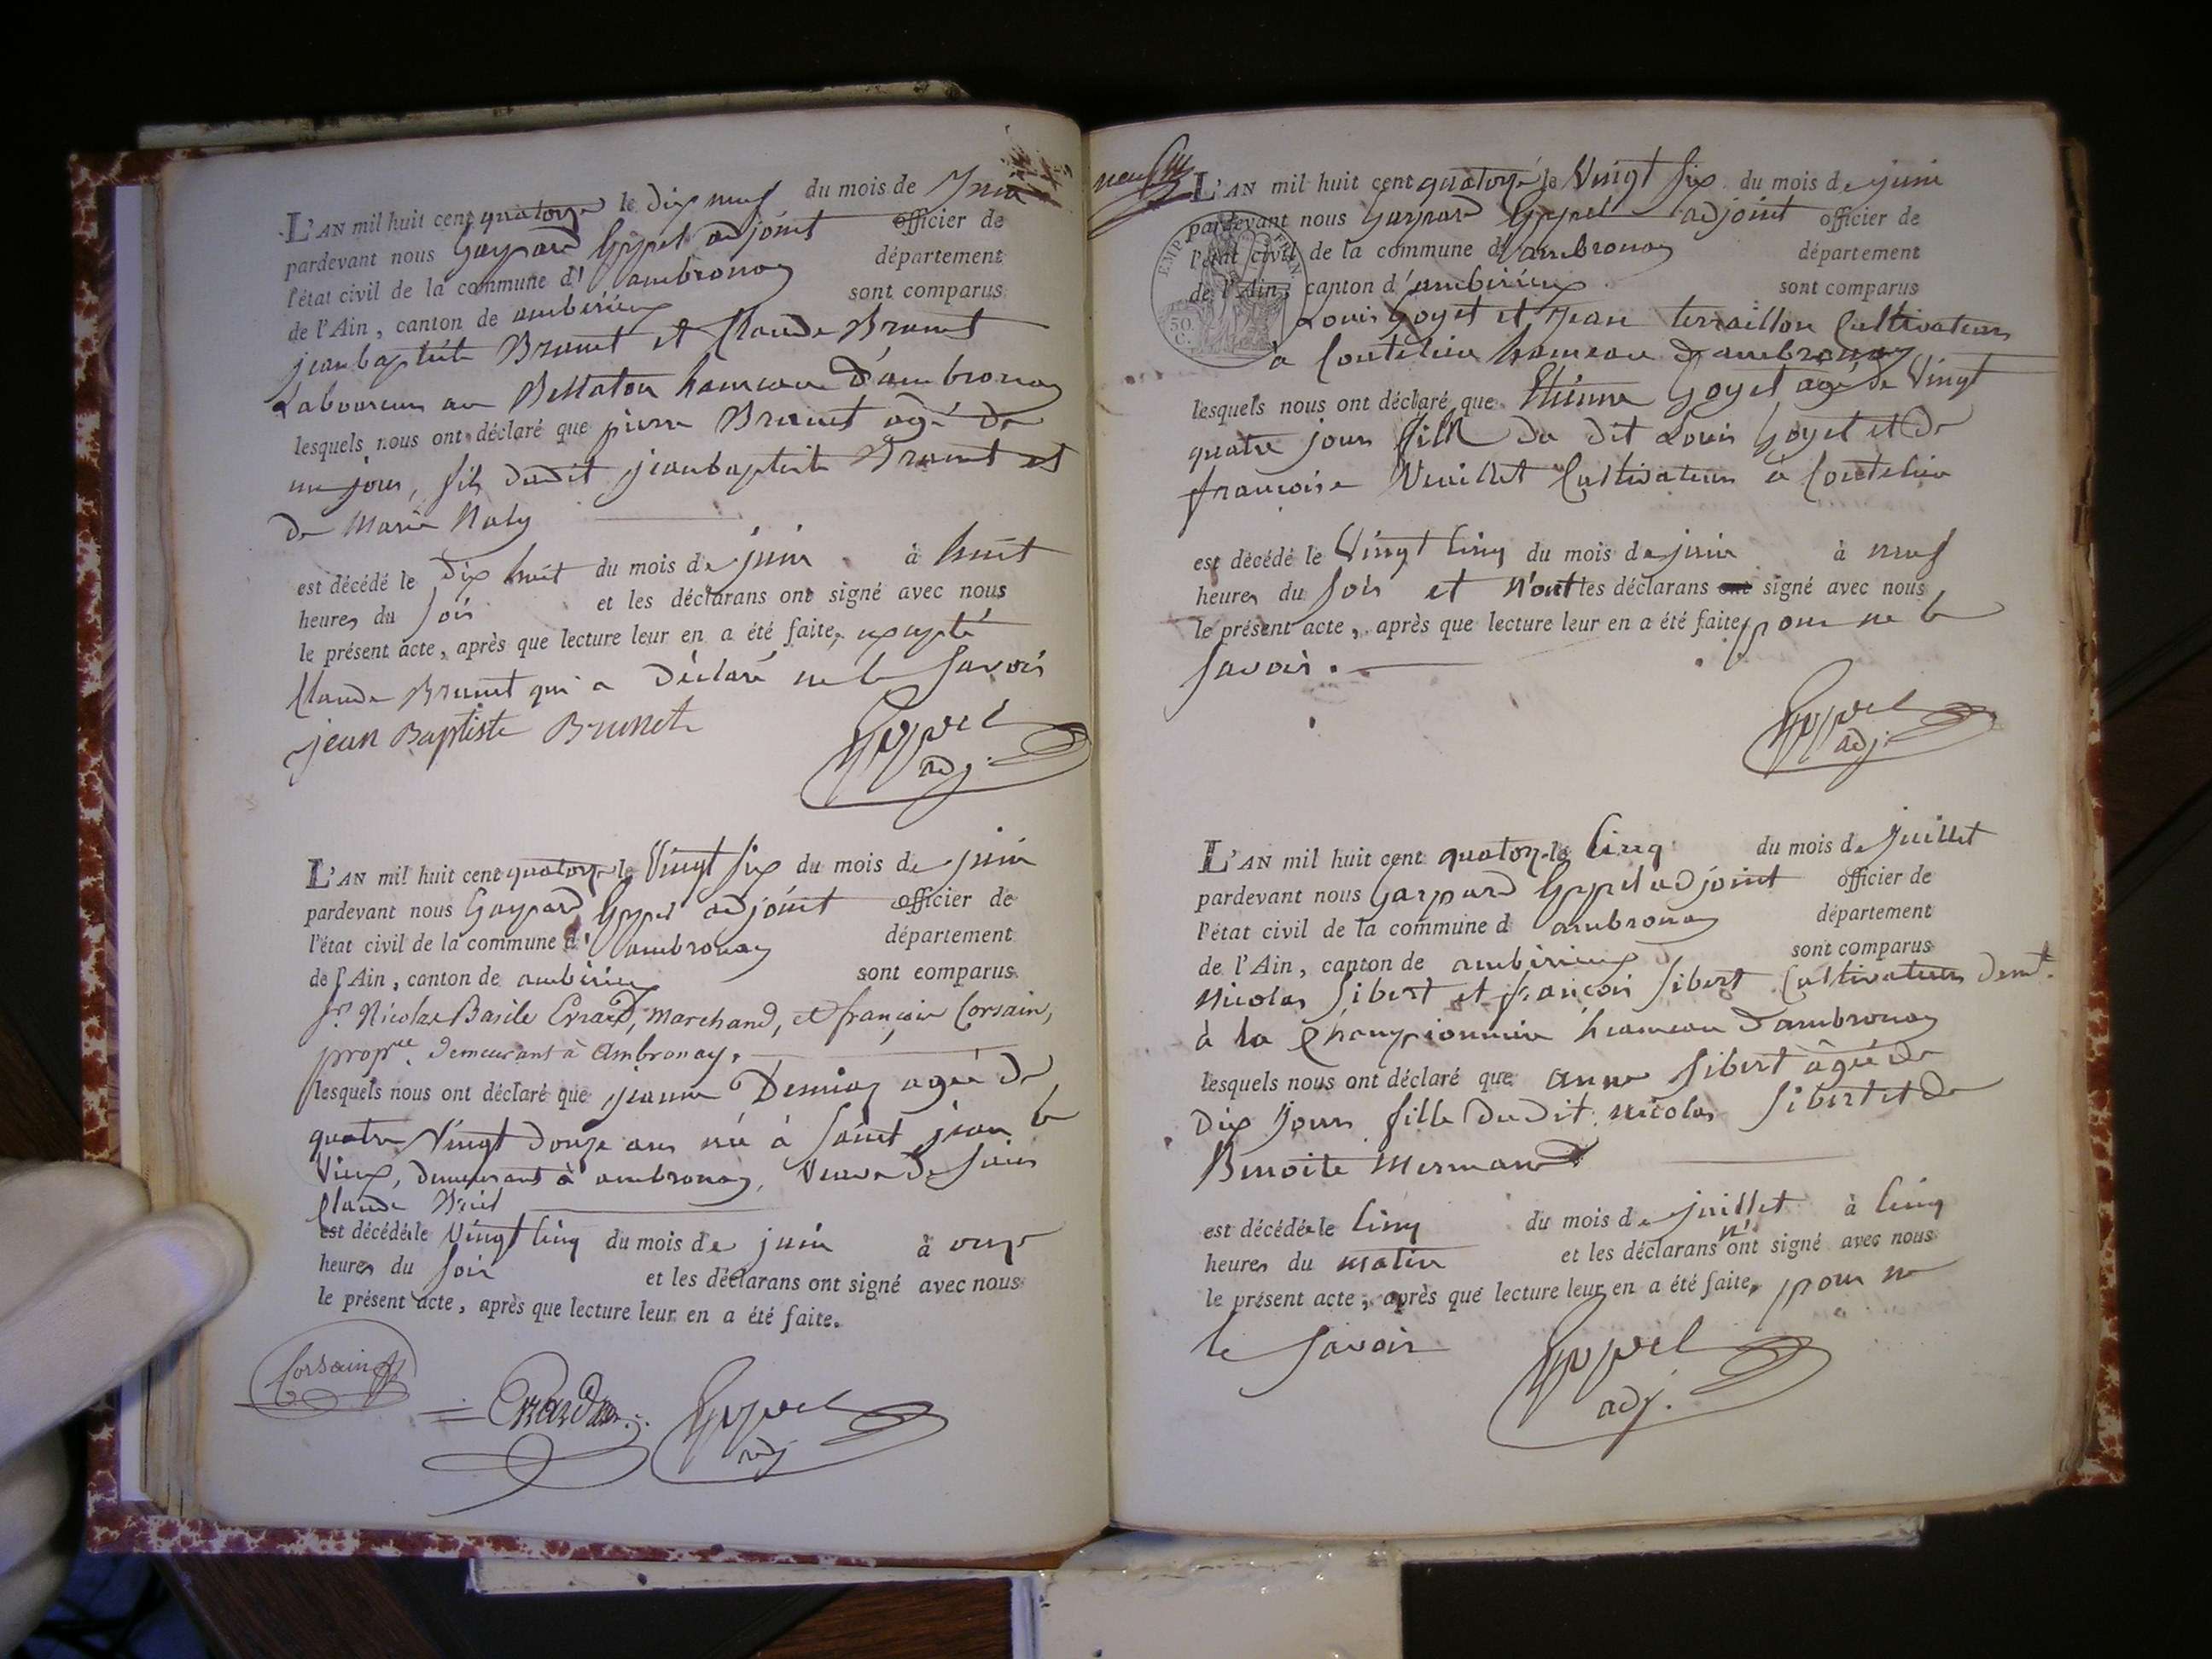 L'AN mil huit cent quatorze le dix neuf du mois de Juin
pardevant nous Gaspard Gypel adjoint officier de
l'état civil de la commune d'ambronay département
de l'Ain, canton de ambérieux sont comparus
jeanbaptiste Brunet et Claude Brunet
Laboureurs au Bellaton hameau d'ambronay
lesquels nous ont déclaré que pierre Brunet agé de
un jour, fils dudit jeanbaptiste Brunet et
de Marie Naly
est décédé le dix huit du mois de juin à huit
heures du soir et les déclarans ont signé avec nous
le présent acte, après que lecture leur en a été faite, excepté
Claude Brunet qui a déclaré ne le savoir
jean Baptiste Brunet Gypel
adj.
L'AN mil huit cent quatorze le Vingt six du mois de juin
pardevant nous Gaspard Gypel adjoint officier de
l'état civil de la commune d'ambronay département
de l'Ain, canton de ambérieux sont comparus
Sr. Nicolas Basile Errard, marchand, et françois Corsain,
propre. demeurant à Ambronay.
lesquels nous ont déclaré que jeanne Demiaz agée de
quatre Vingt douze ans née à Saint jean le
Vieux, demeurant à ambronay, Veuve de
Claude
est décédée le Vingt cinq du mois de juin à onze
heures du soir et les déclarans ont signé avec nous
le présent acte, après que lecture leur en a été faite.
Corsain
Errard Gypel
adj
neuf
L'AN mil huit cent quatorze le Vingt six du mois de juin
pardevant nous Gaspard Gypel adjoint officier de
l'état civil de la commune d'ambronay département
de l'Ain, canton d'ambérieux sont comparus
EMP FRAN.
50
C.
Louis Goyet et Jean terraillon Cultivateurs
à Coutelieu hameau d'ambronay
lesquels nous ont déclaré que Etienne Goyet agé de Vingt
quatre jours fils du dit Louis Goyet et de
françoise Vuillet Cultivateurs à Coutelieu
est décédé le Vingt cinq du mois de juin à neuf
heures du soir et n'ont les déclarans ont signé avec nous
le présent acte, après que lecture leur en a été faite, pour ne le
savoir.
Gypel
adj.
L'AN mil huit cent quatorze le Cinq du mois de Juillet
pardevant nous Gaspard Gypel adjoint officier de
l'état civil de la commune d ambronay département
de l'Ain, canton de ambérieux sont comparus
Nicolas Sibert et françois Sibert Cultivateurs demt.
à la Championnière hameau d'ambronay
lesquels nous ont déclaré que anne Sibert âgée de
dix jours fille dudit nicolas Sibert et de
Benoite Mermand
est décédée le cinq du mois de juillet à cinq
heures du matin et les déclarans n'ont signé avec nous
le présent acte, après que lecture leur en a été faite, pour ne
le savoir
Gypel
adj.